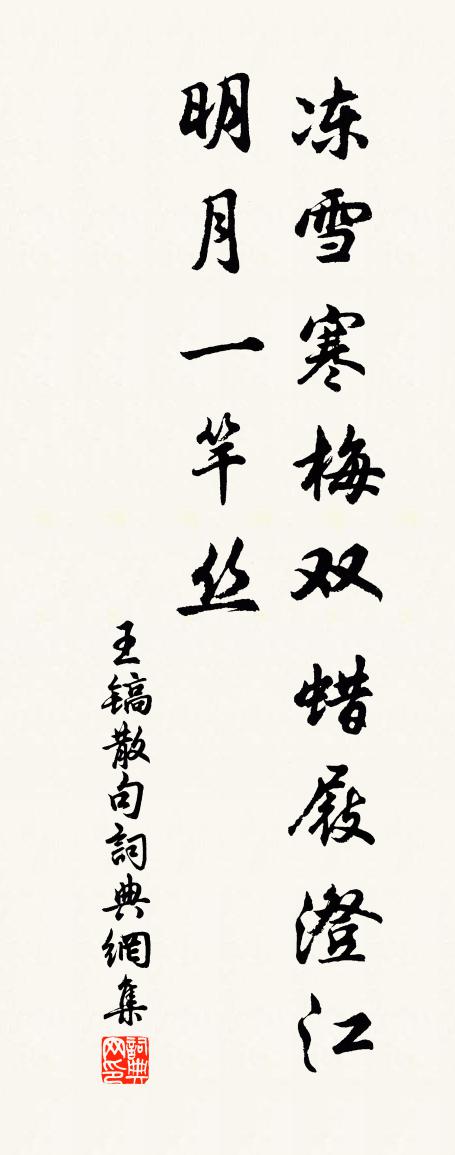 冻雪寒梅双蜡屐澄江
明月一竿丝
王镐散句詞典網集
詞典网印